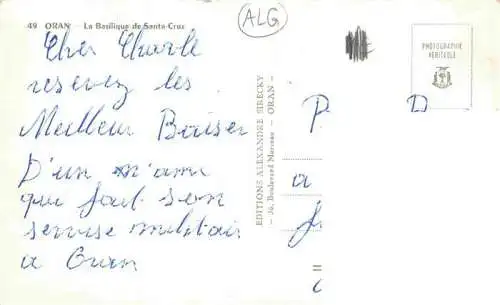 49 ORAN — La Basilique de Santa-Cruz
ALG
Cher Charle
resevez les
Meilleur Baiser
D'un m'ami
que fait son
servise militair
a Oran
EDITIONS ALEXANDRE SIRECKY
— 30, Boulevard Marceau — ORAN —
PHOTOGRAPHIE
VERITABLE
P D
a